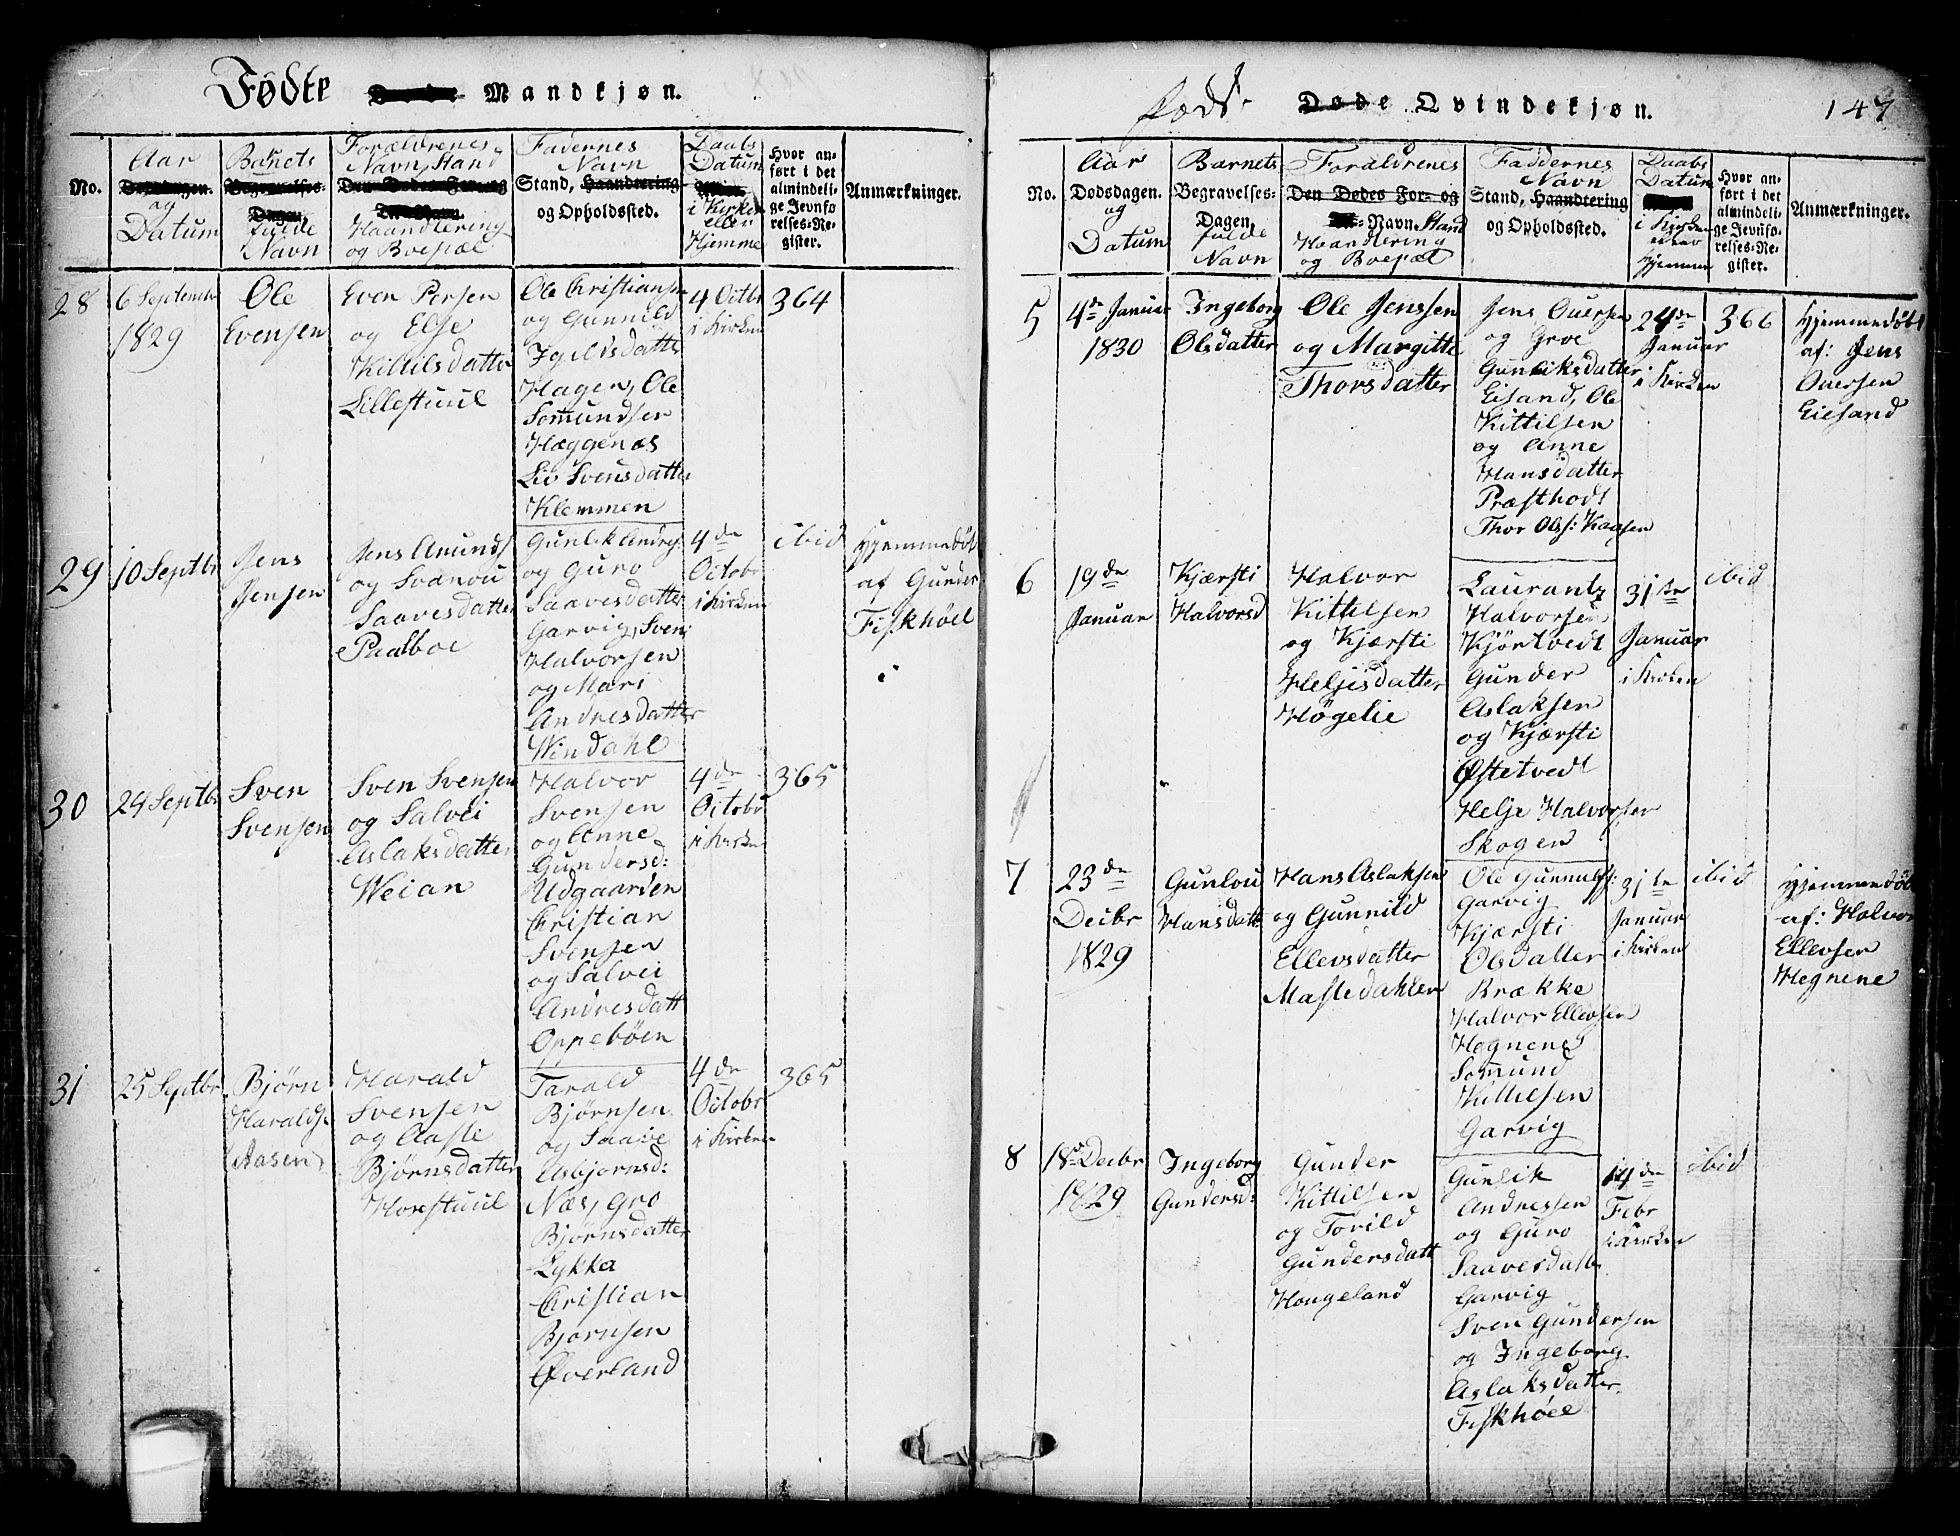 Fødte Døde Mandkjøn.
No.
Aar
og
Datum
Barnets
fulde
Navn
Forældrenes
Navn, Stand
Haandtering
og Bopæl
Fadernes
Navn
Stand, Haandtering
og Opholdssted.
Daabs
Datum
i Kirken
eller
Hjemme
Hvor an-
ført i det
almindeli-
ge Jevnfø-
relses-Re-
gister.
Anmærkninger.
28
6 Septembr
1829
Ole
Evensen
Even Persen
og Else
Kittilsdatter
Lillestuul
Ole Christiansen
og Gunnild
Hagen, Ole
Somundsen
Hæggenæs
Liv Svensdatter
Klemmen
4 Octbr
i Kirken
364
29
10 Septbr
Jens
Jensen
Jens Anunds
og Svanou
Saavesdatter
Paalboe
Gunlek Andres
og Guro
Saavesdatter
Garvig, Sven
Halvorsen
og Mari
Andresdatter
Windahl
4de
Octobr
i Kirken
ibid
Hjemmedøbt
af Gunder
Fiskhøel
30
24 Septbr
Sven
Svensen
Sven Svensen
og Salvei
Aslaksdatter
Weian
Halvor
Svensen
og Anne
Gundersd:
Udgaarden
Christian
Svensen
og Salvei
Andresdatt
Oppebøen
4de
Octobr
i Kirken
365
31
25 Septbr
Bjørn
Haralds
Aasen
Harald
Svensen
og Aaste
Bjørnsdatter
Horstuul
Tarald
Bjørnsen
og Saave
Asbjornsd:
Næs, Gro
Bjørnsdatter
Lykka
Christian
Bjornsen
Øverland
4de
Octobr
i Kirken
365
Født Døde Qvindekjøn.
147
No.
Aar
Dødsdagen.
og
Datum
Barnets
Begravelses-
Dagen,
fulde
Navn
Forældrenes
Den Dødes For- og
Navn, Stand
Haandtering
og Bopæl
Faddernes
Navn
Stand, Haandtering
og Opholdssted.
Daabs
Datum
i Kirken
eller
Hjemme
Hvor an-
ført i det
almindeli-
ge Jevnfø-
relses-Re-
gister.
Anmærkninger.
5
4de Januar
1830
Ingeborg
Olsdatter
Ole Jenssen
og Margitte
Thorsdatter
Jens Ouersen
og Groe
Gunleiksdatter
Eisand, Ole
Kittilsen
og Anne
Hansdatter
Præsthodt
Thor Ols: Kaasen
24de
Januar
i Kirken
366
Hjemmedøbt
af: Jens
Ouersen
Eiesand
6
19de
Januar
Kjærsti
Halvorsd
Halvor
Kittilsen
og Kjærsti
Heljesdatter
Høgelie
Laurantz
Halvorsen
Kjørtvedt
Gunder
Aslaksen
og Kjærsti
Østetvedt
Helje Halvorsen
Skogen
31te
Januar
i Kirken
ibid
7
23de
Decbr
1829
Gunlou
Hansdatt
Hans Aslaksen
og Gunnild
Ellevsdatter
Mastedahlen
Ole Gunnulfs:
Garvig
Kjærsti
Olsdatter
Brække
Halvor Ellevsen
Hegnene
Somund
Kittilsen
Garvig
31te
Januar
i Kirken
ibid
Hjemmedøbt
af: Halvor
Ellevsen
Hegnene
8
18de Decbr
1829
Ingeborg
Gundersd:
Gunder
Kittilsen
og Torild
Gundersdatt
Hougeland
Gunlik
Andressen
og Guro
Saavesdatt
Garvig
Sven Gundersen
og Ingeborg
Aslaksdatter
Fiskhøel
14de
Febr
i Kirken
ibid